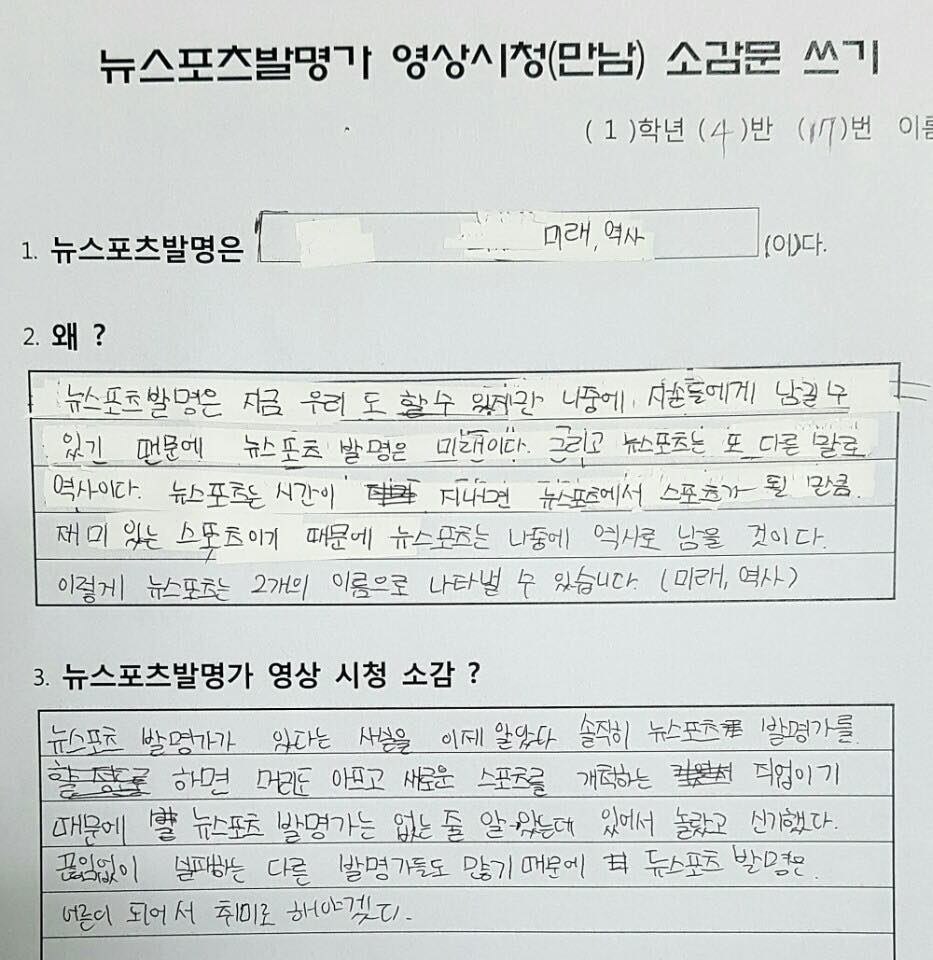 뉴스포츠발명가 영상시청(만남) 소감문 쓰기
( 1 )학년 (4)반 (17)번 이름
1. 뉴스포츠발명은 미래, 역사 (이)다.
2. 왜 ?
뉴스포츠발명은 지금 우리 도 할 수 있지만 나중에 자손들에게 남길 수
있기 때문에 뉴스포츠 발명은 미래이다. 그리고 뉴스포츠는 또 다른 말로
역사이다. 뉴스포츠는 시간이 지나면 뉴스포츠에서 스포츠가 될 만큼
재미 있는 스포츠이기 때문에 뉴스포츠는 나중에 역사로 남을 것이다.
이렇게 뉴스포츠는 2개의 이름으로 나타낼 수 있습니다. (미래, 역사)
3. 뉴스포츠발명가 영상 시청 소감 ?
뉴스포츠 발명가가 있다는 사실을 이제 알았다 솔직히 뉴스포츠 발명가를
하면 머리도 아프고 새로운 스포츠를 개척하는 직업이기
때문에 뉴스포츠 발명가는 없는 줄 알았는데 있어서 놀랐고 신기했다.
끊임없이 실패하는 다른 발명가들도 많기 때문에 뉴스포츠 발명은
어른이 되어서 취미로 해야겠다.